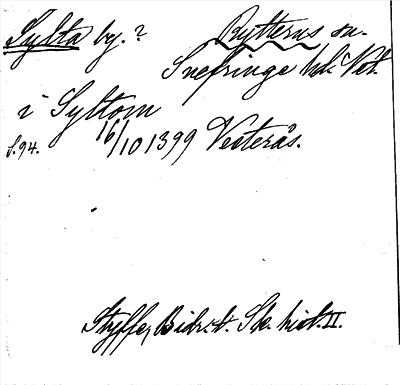 Sylta by.? Rytterns sn.
Snefringe hd. Vst.
i Syltom
S.94. 16/10 1399 Vesterås.
Styffe, Bidr. t. Sk. hist. II.